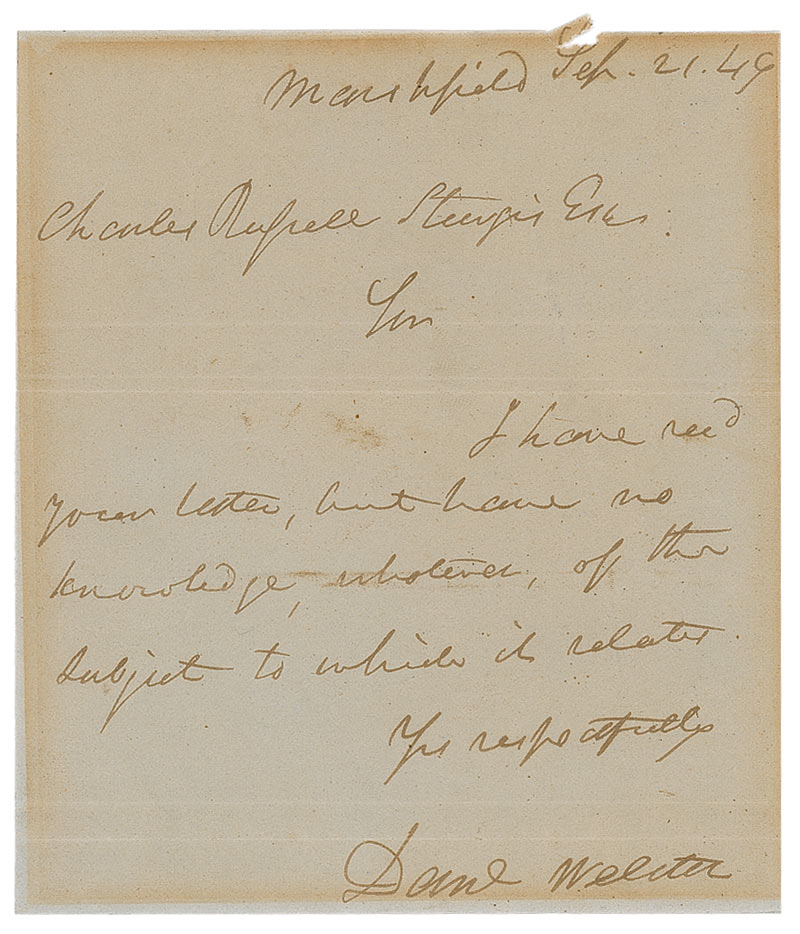 Marshfield Sep. 21. 49
Charles Russell Sturgis Esq.
Sir
I have recd
your letter, but have no
knowledge, whatever, of the
subject to which it relates.
Yrs respectfully
Danl Webster